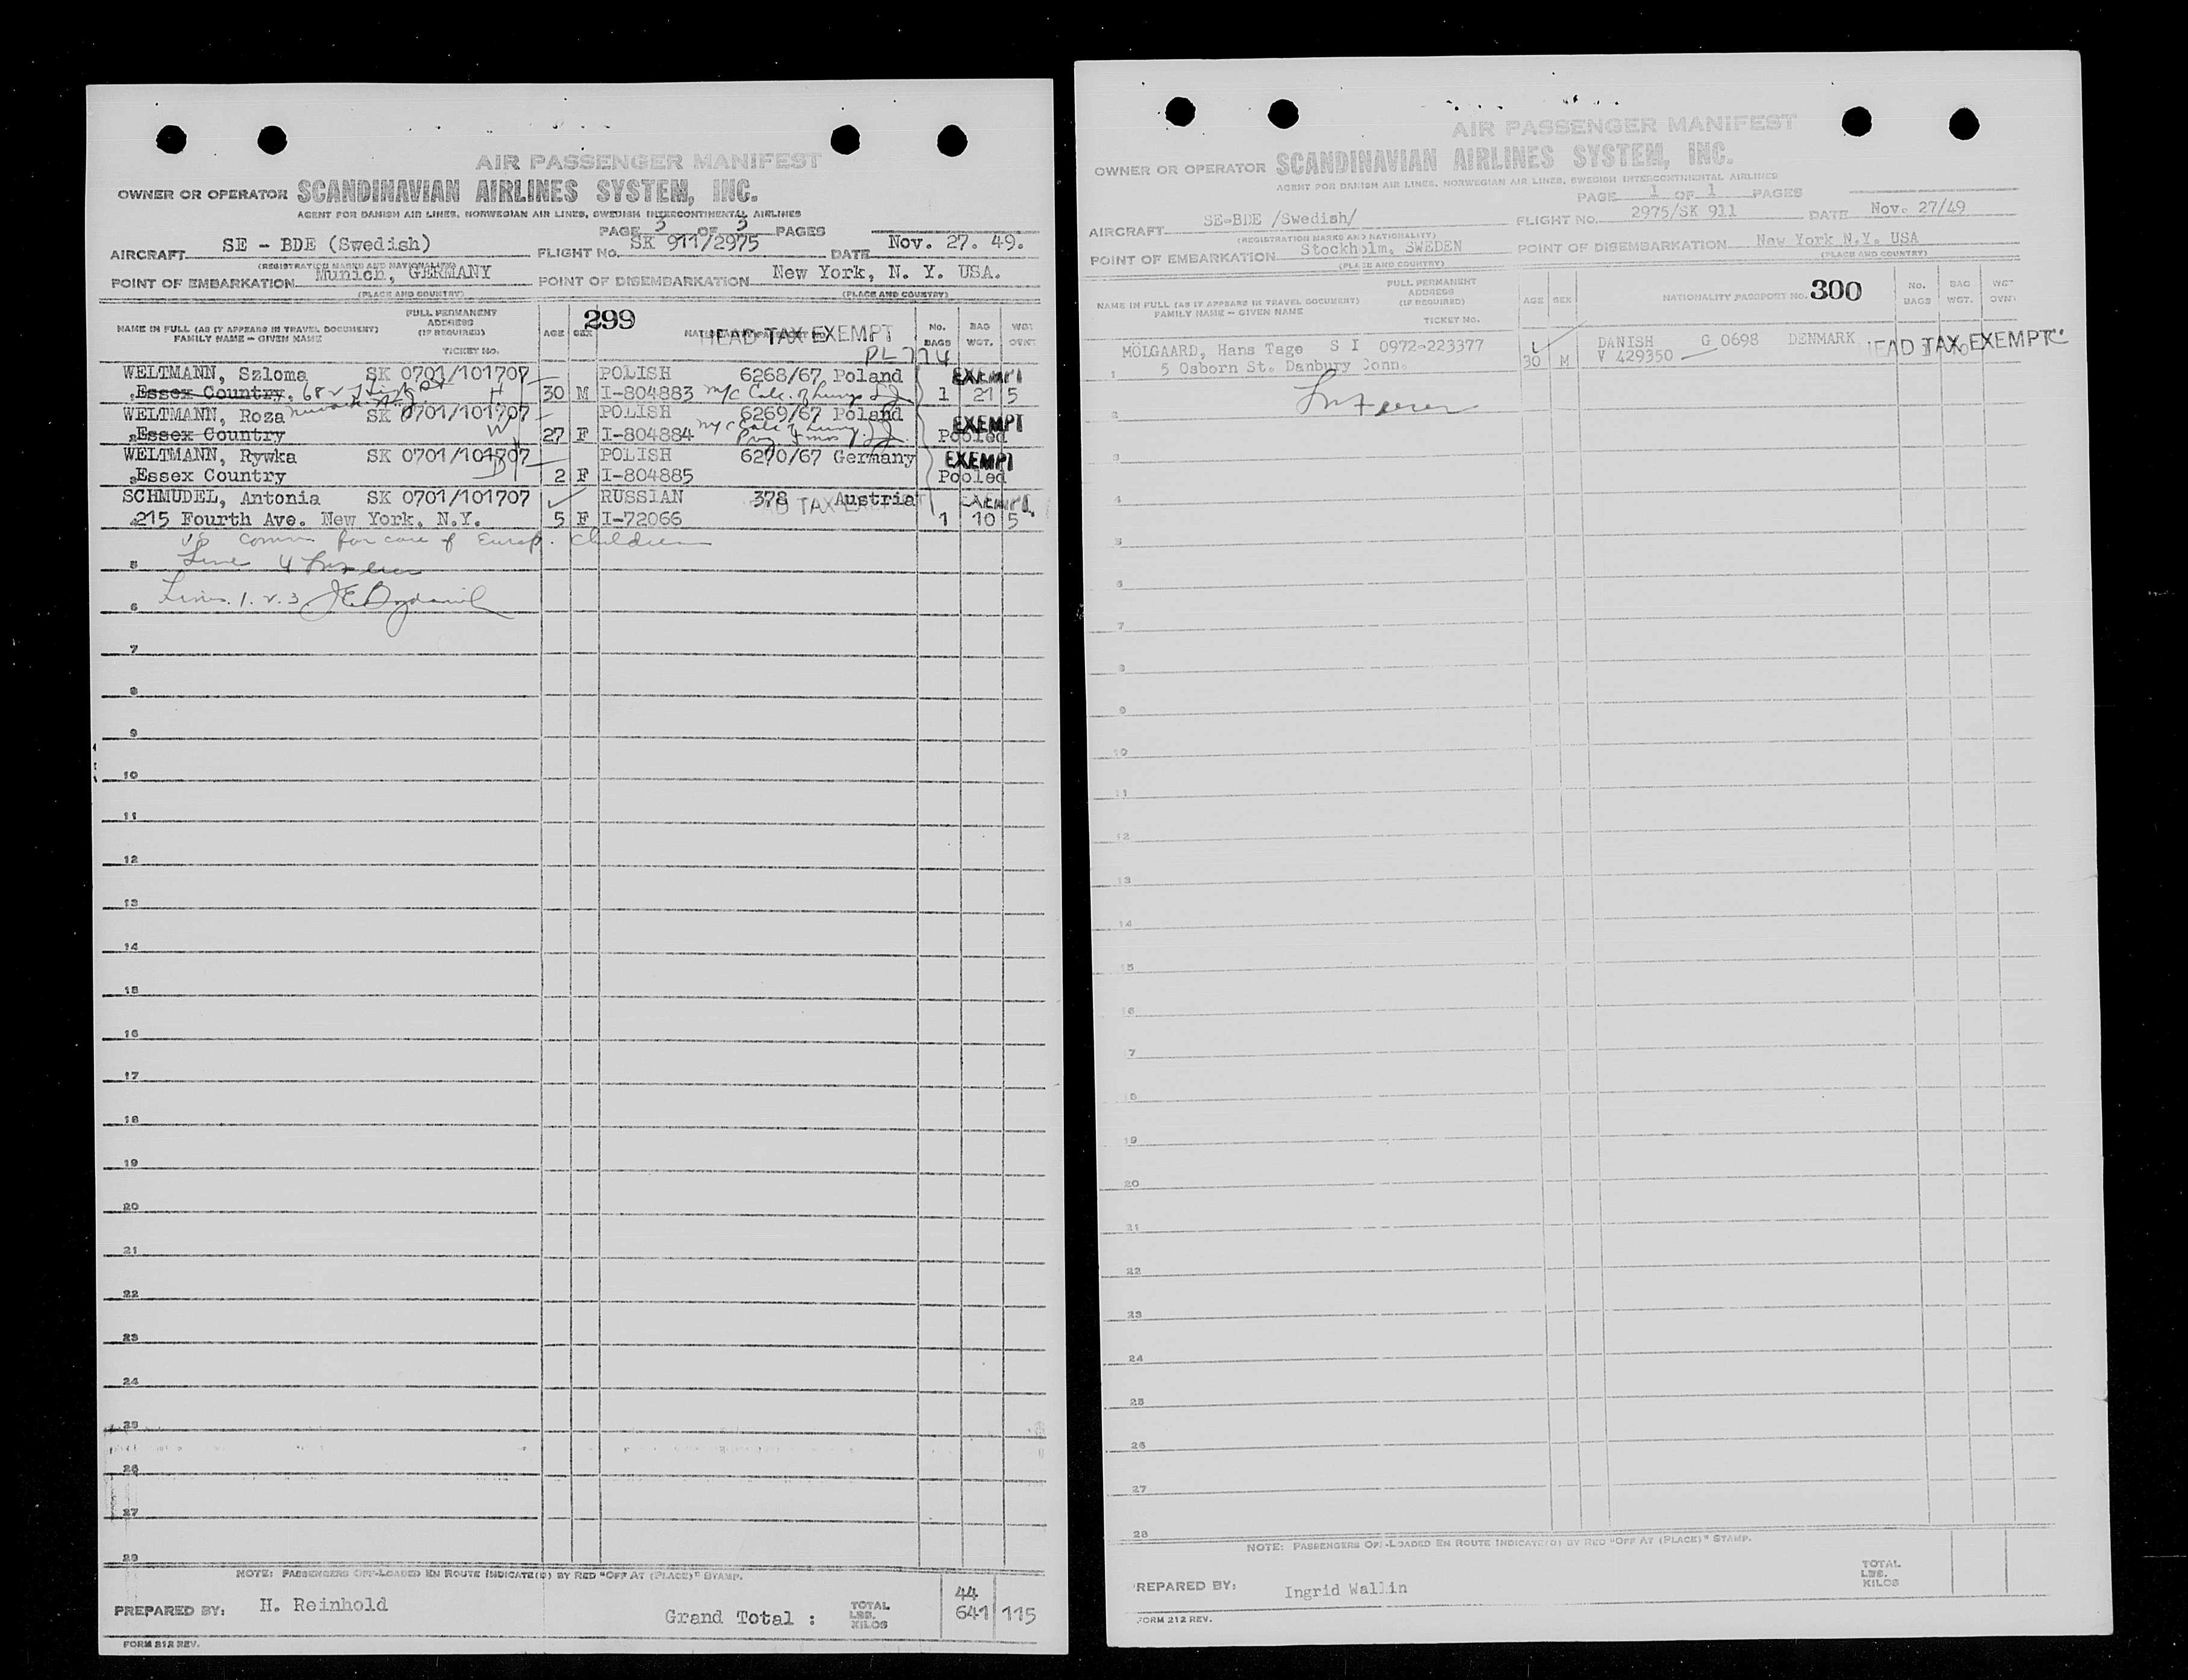 AIR PASSENGER MANIFEST
OWNER OR OPERATOR SCANDINAVIAN AIRLINES SYSTEM, INC.
AGENT FOR DANISH AIR LINES, NORWEGIAN AIR LINES, SWEDISH INTERCONTINENTAL AIRLINES
PAGE 3 OF 3 PAGES
AIRCRAFT SE - BDE (Swedish) FLIGHT NO. SK 911/2975 DATE Nov. 27. 49.
(REGISTRATION MARKS AND NATIONALITY)
POINT OF EMBARKATION Munich, GERMANY POINT OF DISEMBARKATION New York, N. Y. USA.
(PLACE AND COUNTRY) (PLACE AND COUNTRY)
NAME IN FULL (AS IT APPEARS IN TRAVEL DOCUMENT)
FAMILY NAME - GIVEN NAME
FULL PERMANENT
ADDRESS
(IF REQUIRED)
TICKET NO.
AGE SEX 299 HEAD TAX EXEMPT
PL 774
No. BAGS BAG WGT. WGT OVWT
WELTMANN, Szloma SK 0701/101707 POLISH 6268/67 Poland EXEMPT
1 Essex Country, 68 Newark N.J. H 30 M I-804883 M/C Calc. of lungs 1 21 5
WELTMANN, Roza SK 0701/101707 POLISH 6269/67 Poland EXEMPT
2 Essex Country W 27 F I-804884 M/C Calc of lung Preg 4 mos Pooled
WELTMANN, Rywka SK 0701/101707 POLISH 6270/67 Germany EXEMPT
3 Essex Country D 2 F I-804885 Pooled
SCHMUDEL, Antonia SK 0701/101707 RUSSIAN 378 Austria EXEMPT
HEAD TAX EXEMPT
4 215 Fourth Ave. New York, N.Y. 5 F I-72066 1 10 5
US Comm for care of Europ. Children
5 Line 4
6 Lines 1. 2. 3
7
8
9
10
11
12
13
14
15
16
17
18
19
20
21
22
23
24
25
26
27
28
NOTE: PASSENGERS OFF-LOADED EN ROUTE INDICATE(D) BY RED "OFF AT (PLACE)" STAMP.
PREPARED BY: H. Reinhold Grand Total : TOTAL LBS. KILOS 44 641 115
FORM 212 REV.
AIR PASSENGER MANIFEST
OWNER OR OPERATOR SCANDINAVIAN AIRLINES SYSTEM, INC.
AGENT FOR DANISH AIR LINES, NORWEGIAN AIR LINES, SWEDISH INTERCONTINENTAL AIRLINES
PAGE 1 OF 1 PAGES
AIRCRAFT SE-BDE /Swedish/ FLIGHT NO. 2975/SK 911 DATE Nov. 27/49
(REGISTRATION MARKS AND NATIONALITY)
POINT OF EMBARKATION Stockholm, SWEDEN POINT OF DISEMBARKATION New York N.Y. USA
(PLACE AND COUNTRY) (PLACE AND COUNTRY)
NAME IN FULL (AS IT APPEARS IN TRAVEL DOCUMENT)
FAMILY NAME - GIVEN NAME
FULL PERMANENT
ADDRESS
(IF REQUIRED)
TICKET NO.
AGE SEX NATIONALITY PASSPORT NO. 300 No. BAGS BAG WGT. WGT OVWT
MÖLGAARD, Hans Tage S I 0972-223377 DANISH G 0698 DENMARK HEAD TAX EXEMPT
1 5 Osborn St. Danbury Conn. 30 M V 429350
2
3
4
5
6
7
8
9
10
11
12
13
14
15
16
17
18
19
20
21
22
23
24
25
26
27
28
NOTE: PASSENGERS OFF-LOADED EN ROUTE INDICATE(D) BY RED "OFF AT (PLACE)" STAMP.
PREPARED BY: Ingrid Wallin TOTAL LBS. KILOS
FORM 212 REV.